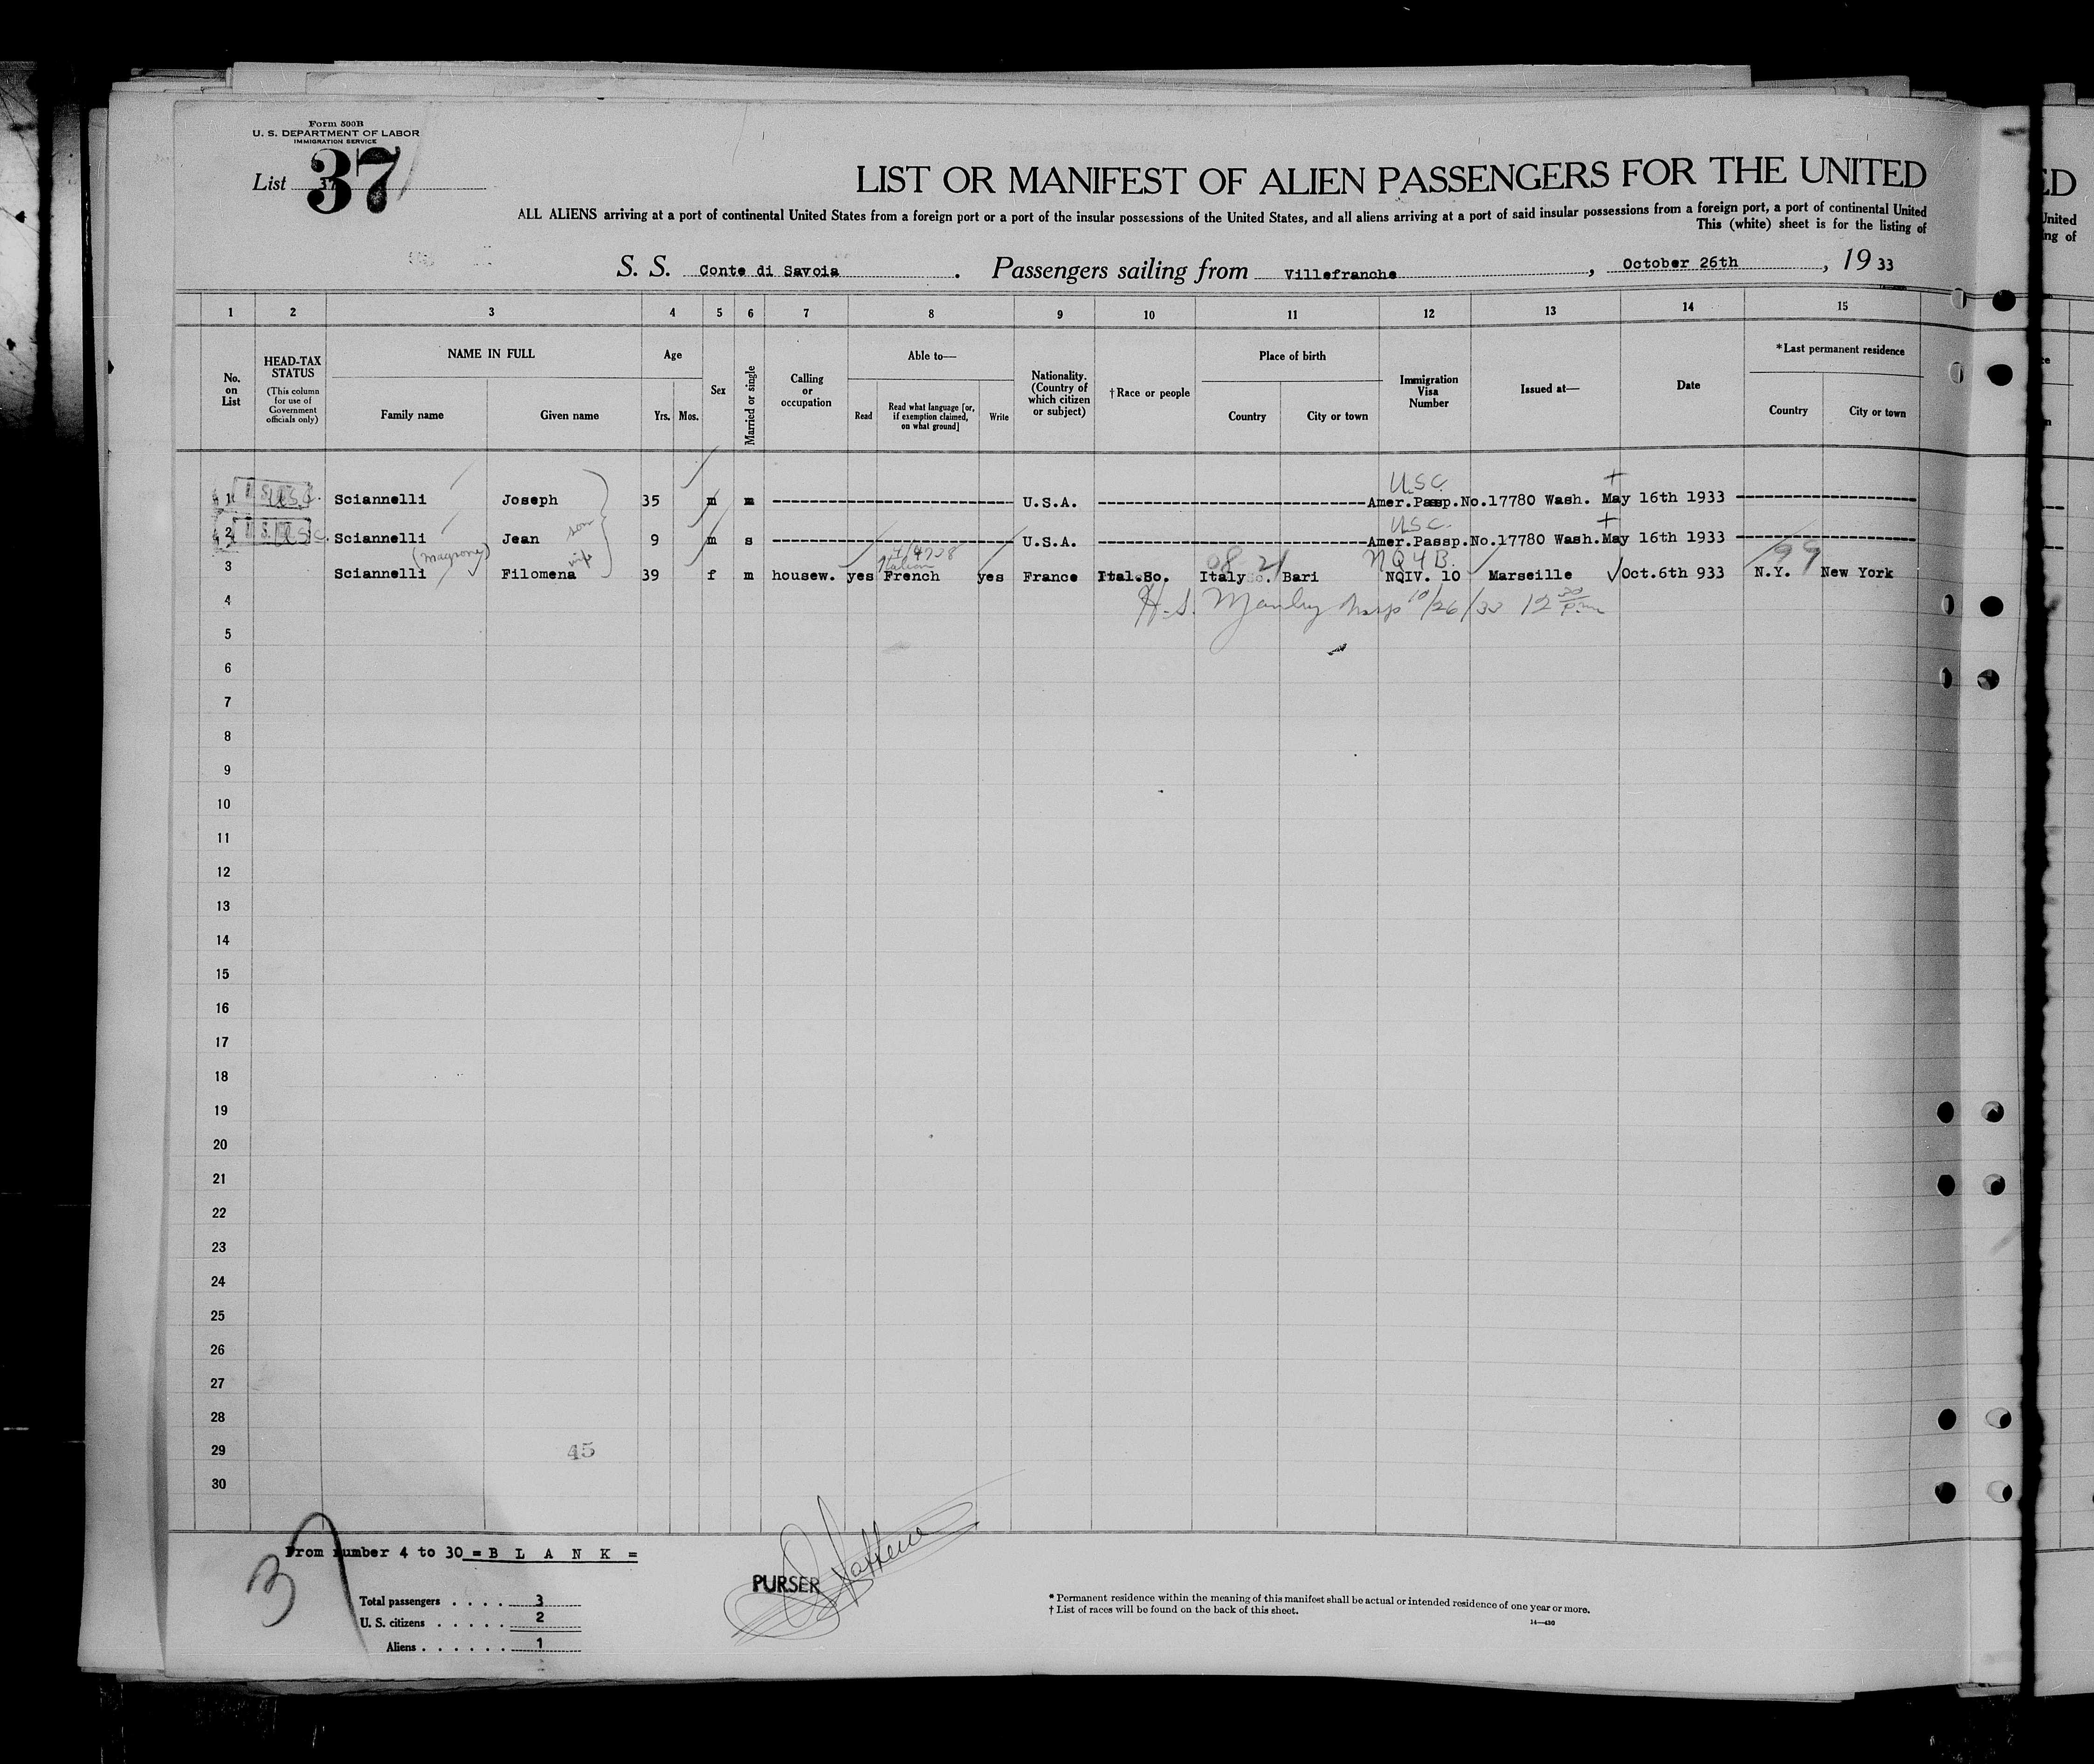 Form 500B
U. S. DEPARTMENT OF LABOR
IMMIGRATION SERVICE
List 37
37
LIST OR MANIFEST OF ALIEN PASSENGERS FOR THE UNITED
ALL ALIENS arriving at a port of continental United States from a foreign port or a port of the insular possessions of the United States, and all aliens arriving at a port of said insular possessions from a foreign port, a port of continental United
This (white) sheet is for the listing of
S. S. Conte di Savoia . Passengers sailing from Villefranche , October 26th , 19 33
1 2 3 4 5 6 7 8 9 10 11 12 13 14 15
No. on List
HEAD-TAX STATUS (This column for use of Government officials only)
NAME IN FULL
Family name Given name
Age
Yrs. Mos.
Sex
Married or single
Calling or occupation
Able to—
Read Read what language [or, if exemption claimed, on what ground] Write
Nationality. (Country of which citizen or subject)
†Race or people
Place of birth
Country City or town
Immigration Visa Number
Issued at—
Date
*Last permanent residence
Country City or town
USC
1 Sciannelli Joseph 35 m m U.S.A. Amer.Passp.No.17780 Wash. May 16th 1933
son USC
2 Sciannelli Jean 9 m s U.S.A. Amer.Passp.No.17780 Wash.May 16th 1933
(Magrone) wife Italian 08 21 NQ4B 99
3 Sciannelli Filomena 39 f m housew. yes French yes France Ital.So. Italy So. Bari NQIV. 10 Marseille Oct.6th 933 N.Y. New York
H.S. 10/26/33 12 30 p.m
4
5
6
7
8
9
10
11
12
13
14
15
16
17
18
19
20
21
22
23
24
25
26
27
28
29 45
30
From number 4 to 30 = B L A N K =
37
Total passengers . . . . 3
U. S. citizens . . . . . 2
Aliens . . . . . . 1
PURSER
* Permanent residence within the meaning of this manifest shall be actual or intended residence of one year or more.
† List of races will be found on the back of this sheet.
14—430
ED
United
ng of